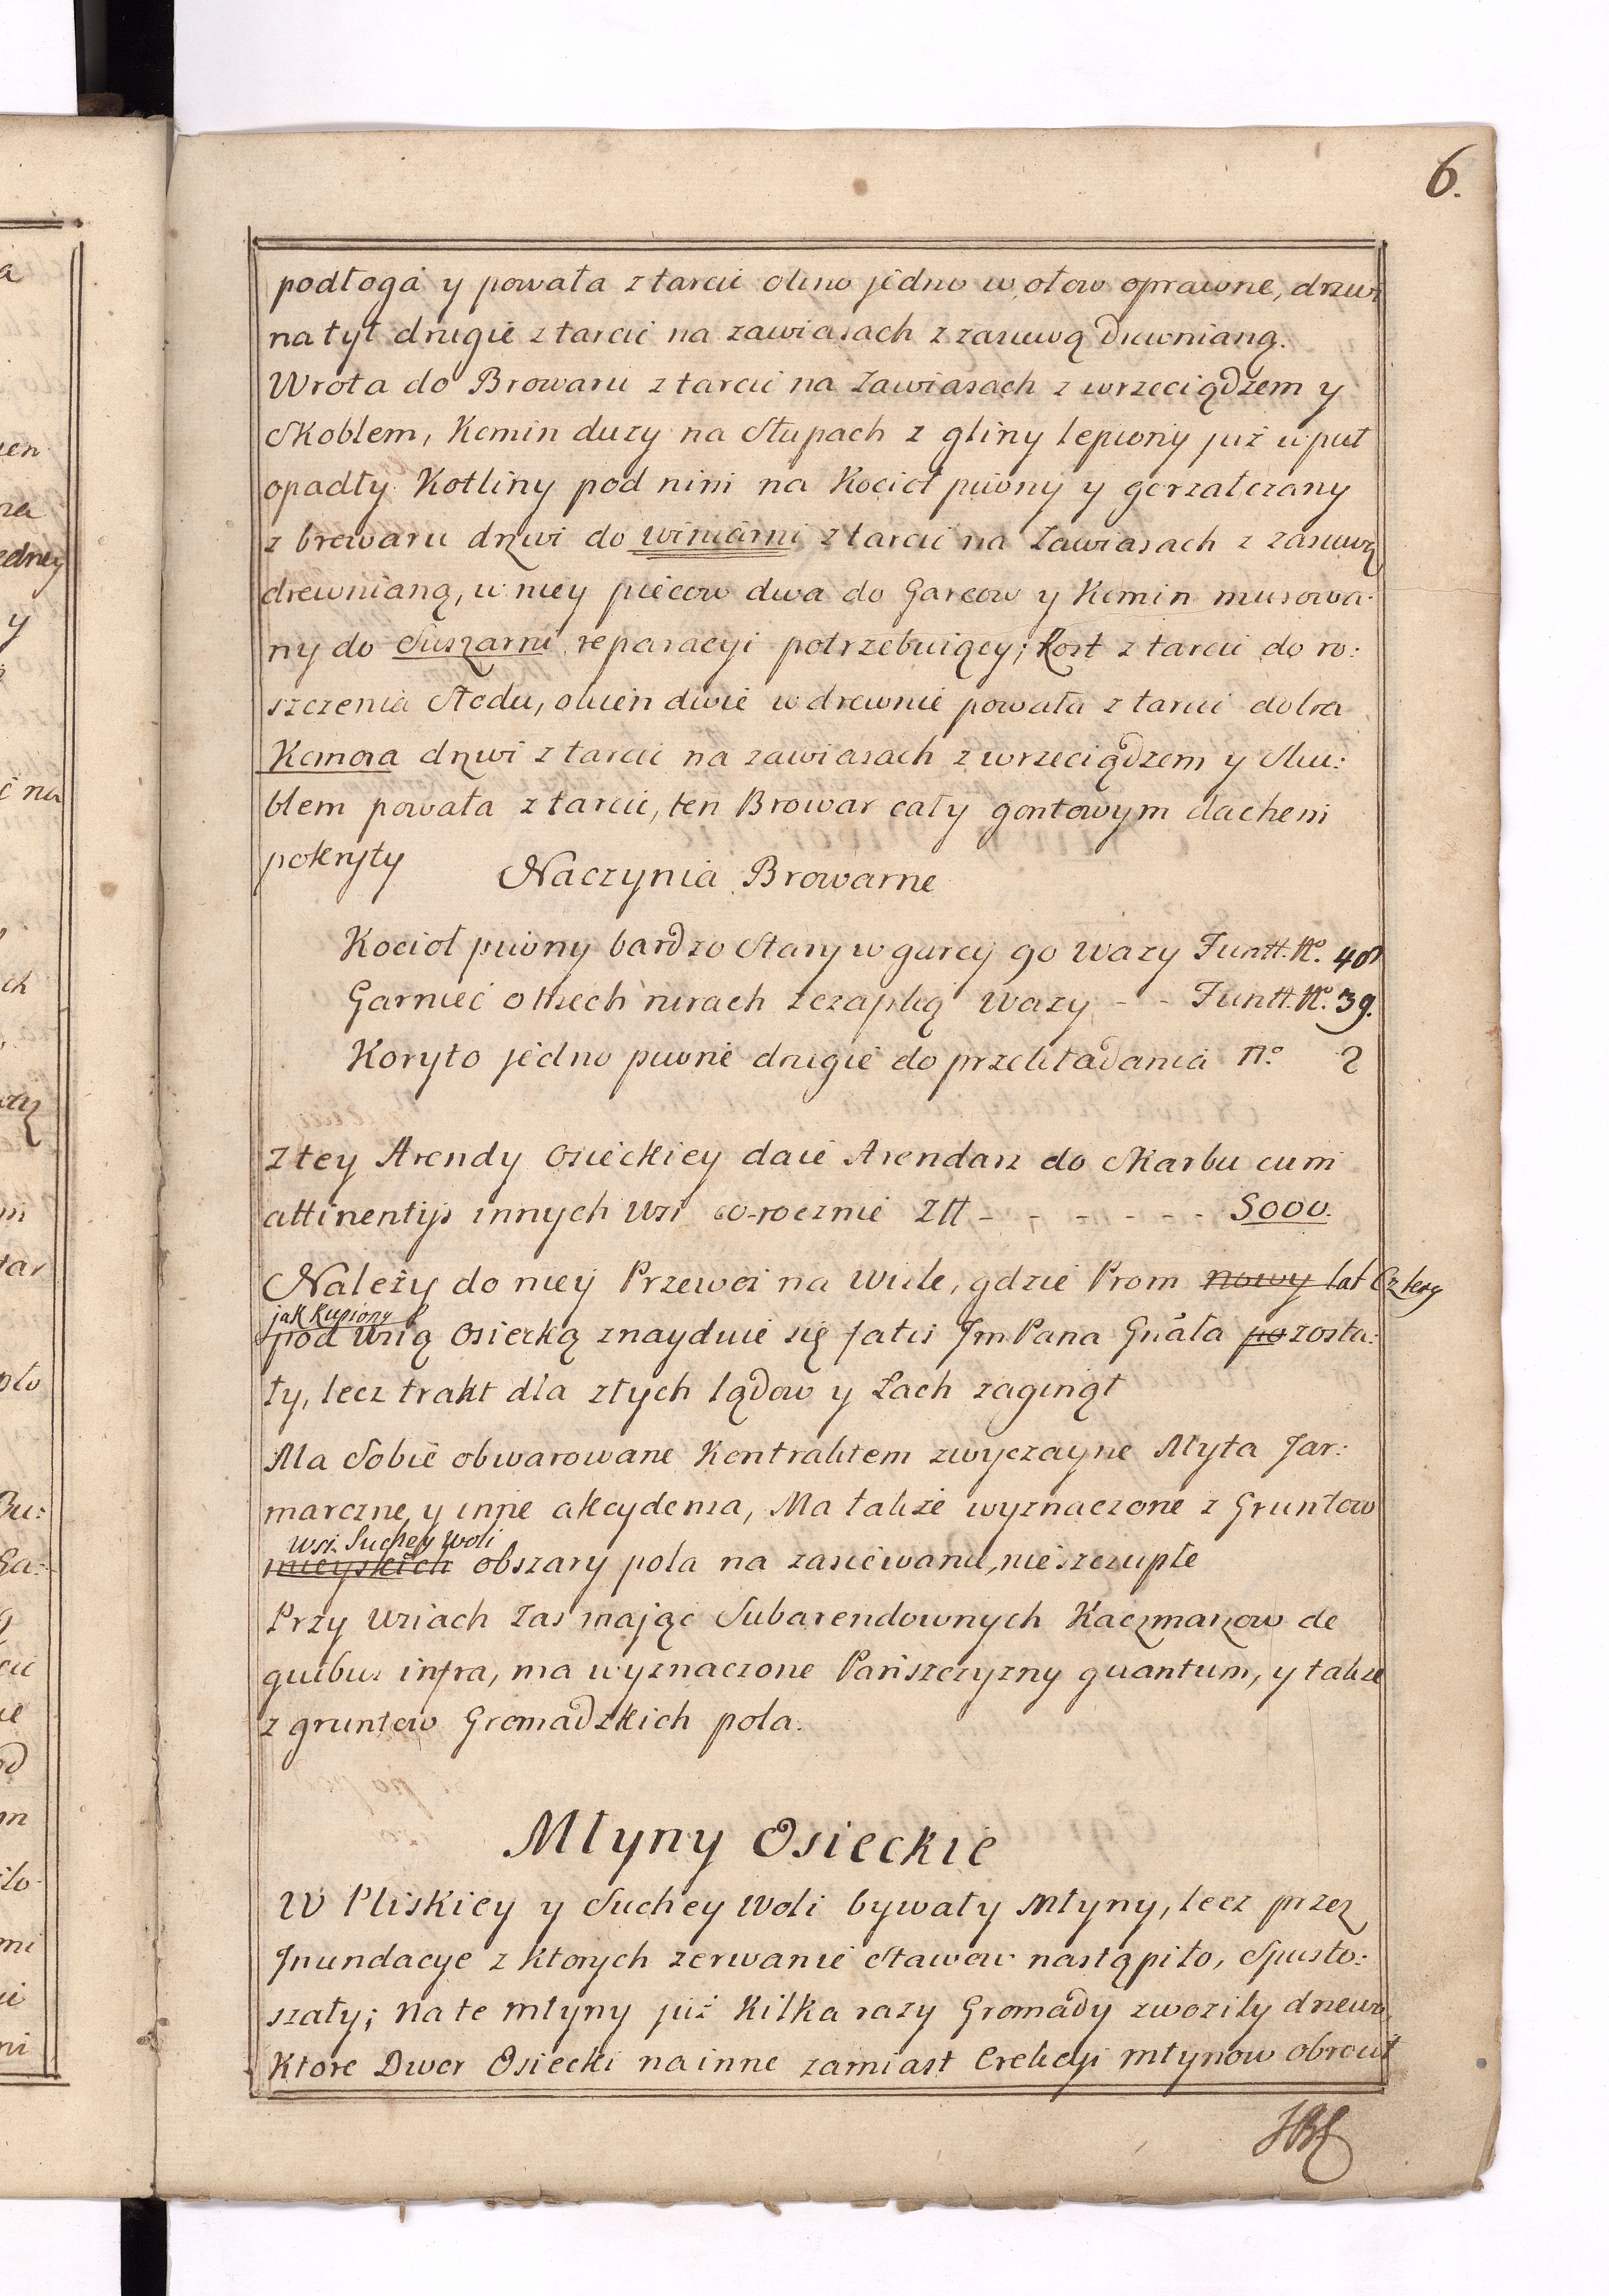 6.
podłoga y powała z tarcic okno jedno w ołow oprawne, drzwi
na tył drugie z tarcic na zawiasach z zasuwą drewnianą.
Wrota do Browaru z tarcic na zawiasach z wrzeciądzem y
Skoblem, Komin duży na Słupach z gliny lepiony już w puł
opadły Kotliny pod nim na Kocioł piwny y gorzałczany
z browaru drzwi do winiarni z tarcic na zawiasach z zasuwą
drewnianą, w niey piecow dwa do Garcow y Komin murowa-
ny do Suszarni reparacyi potrzebuiący; Rost z tarcic do ro:
szczenia Słodu, okien dwie w drewnie powała z tarcic dobra
Komora drzwi z tarcic na zawiasach z wrzeciądzem y Sko:
blem powała z tarcic, ten Browar cały gontowym dachem
pokryty
Naczynia Browarne
Kocioł piwny bardzo Stary w garcy 90 Waży Funtt. No. 40
Garniec o trzech rurach z czapką Waży - - Funtt. No. 39.
Koryto jedno piwne drugie do przekładania No. 2
Z tey Arendy Osieckiey daie Arendarz do Skarbu cum
attinentijs innych Wsi co-rocznie Złł - - - - - - 5000.
Należy do niey Przewoz na Wiśle, gdzie Prom nowy lat Cztery
jak kupiony
pod Wsią Osiecką znayduie się fatis Jm Pana Gnała po zosta:
ły, lecz trakt dla złych lądow y Łach zaginął
Ma Sobie obwarowane Kontraktem zwyczayne Myta Jar:
marczne, y inne akcydensa, Ma także wyznaczone z Gruntow
Wsi Suchey Woli
mieyskich obszary pola na zasiewanie, nieszczupłe
Przy Wsiach zas mając Subarendownych Kaczmarzow de
quibus infra, ma wyznaczone Pańszczyzny quantum, y także
z gruntow Gromadzkich pola.
Młyny Osieckie
W Pliskiey y Suchey Woli bywały Młyny, lecz przez
Jnundacye z ktorych zerwanie Stawow nastąpiło, Spusto:
szały; na te młyny już Kilka razy Gromady zwoziły drzewo,
Ktore Dwor Osiecki na inne zamiast Erekcyi młynow obrocił